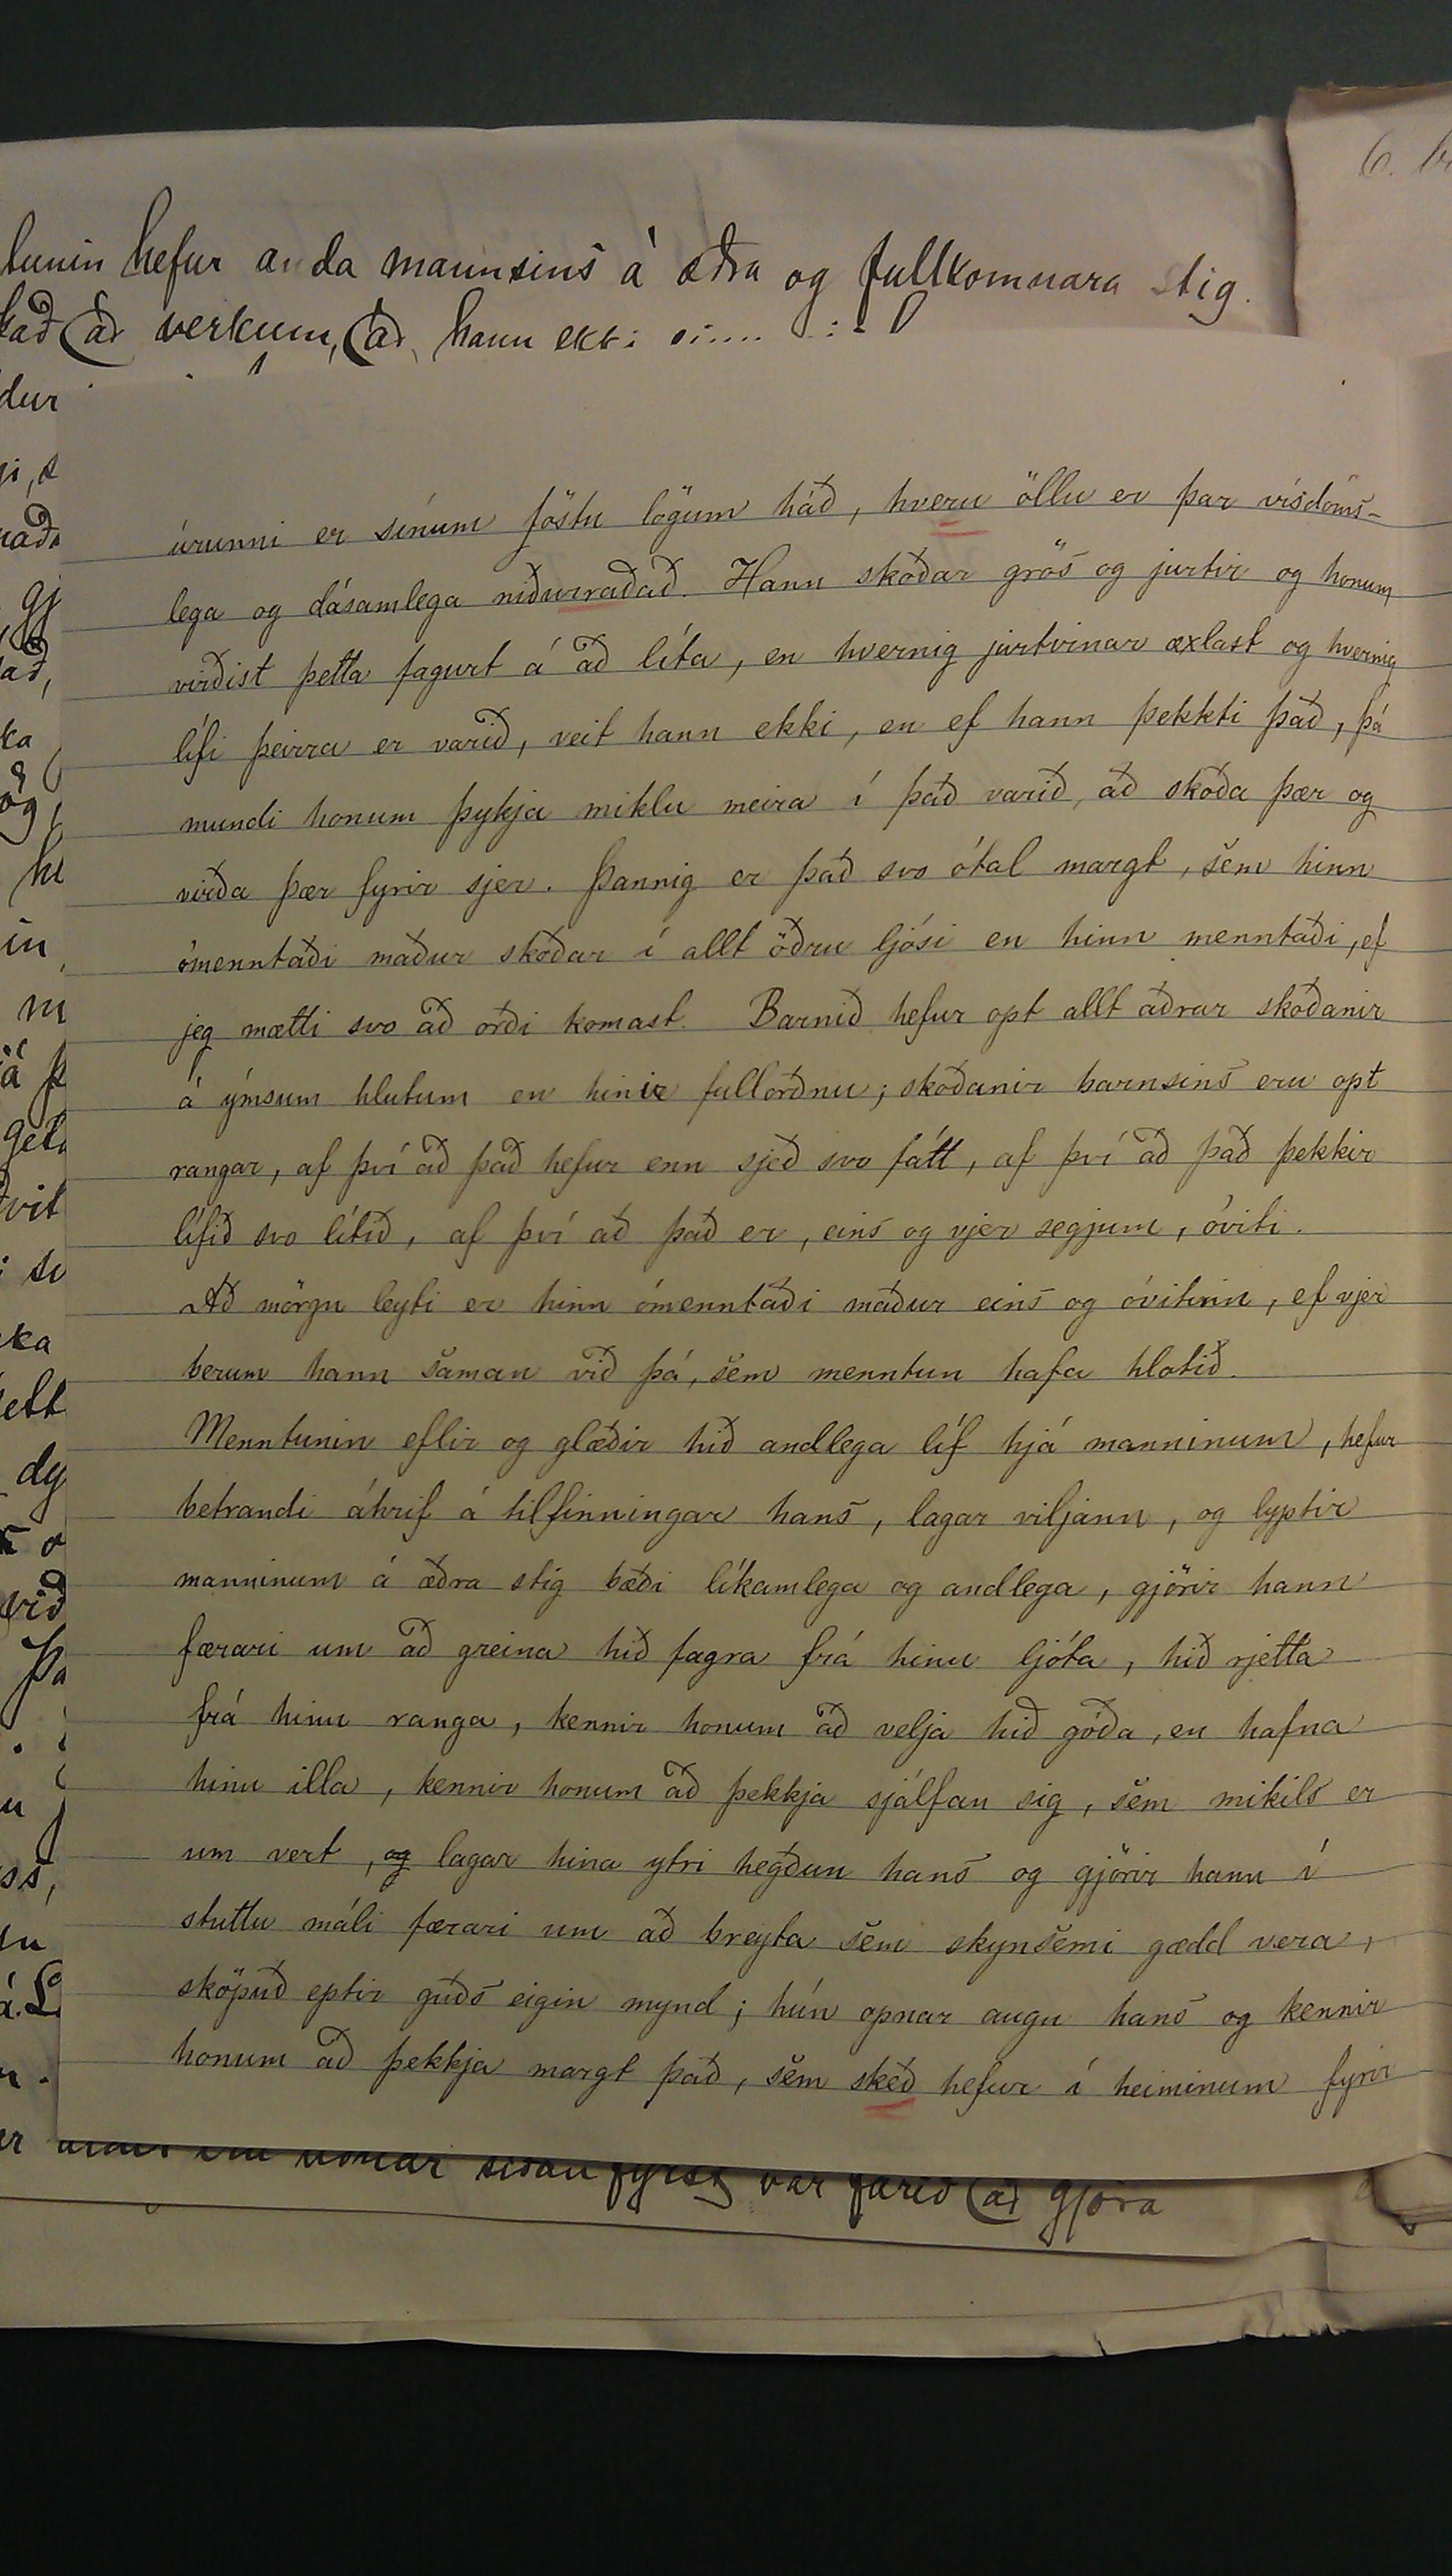 hefur anda mannsins á æðra og fullkomnara stig.
að verkum, að hann ekki
úrunni er sínum föstu lögum háð, hveru öllu er þar vísdóms-
lega og dásamlega niðurraðað. Hann skoðar grös og jurtir og honum
virðist þetta fagurt á að líta, en hvernig jurtirnar æxlast og hvernig
lífi þeirra er varið, veit hann ekki, en ef hann þekkti það, þá
mundi honum þykja miklu meira í það varið, að skoða þær og
virða þær fyrir sjer. Þannig er það svo ótal margt, sem hinn
ómenntaði maður skoðar í allt öðru ljósi en hinn menntaði, ef
jeg mætti svo að orði komast. Barnið hefur opt allt aðrar skoðanir
á ýmsum hlutum en hinir fullorðnu; skoðanir barnsins eru opt
rangar, af því að það hefur enn sjeð svo fátt, af því að það þekkir
lífið svo lítið, af því að það er, eins og vjer segjum, óviti.
Að mörgu leyti er hinn ómenntaði maður eins og óvitinn, ef vjer
berum hann saman við þá, sem menntun hafa hlotið.
Menntunin eflir og glæðir hið andlega líf hjá manninum, hefur
betrandi áhrif á tilfinningar hans, lagar viljann, og lyptir
manninum á æðra stig bæði líkamlega og andlega, gjörir hann
færari um að greina hið fagra frá hinu ljóta, hið rjetta
frá hinu ranga, kennir honum að velja hið góða, en hafna
hinu illa, kennir honum að þekkja sjálfan sig, sem mikils er
um vert, og lagar hina ytri hegðun hans og gjörir hann í
stuttu máli færari um að breyta sem skynsemi gædd vera,
sköpuð eptir guðs eigin mynd; hún opnar augu hans og kennir
honum að þekkja margt það, sem skeð hefur í heiminum fyrir
síðan fyrst var farið að gjöra